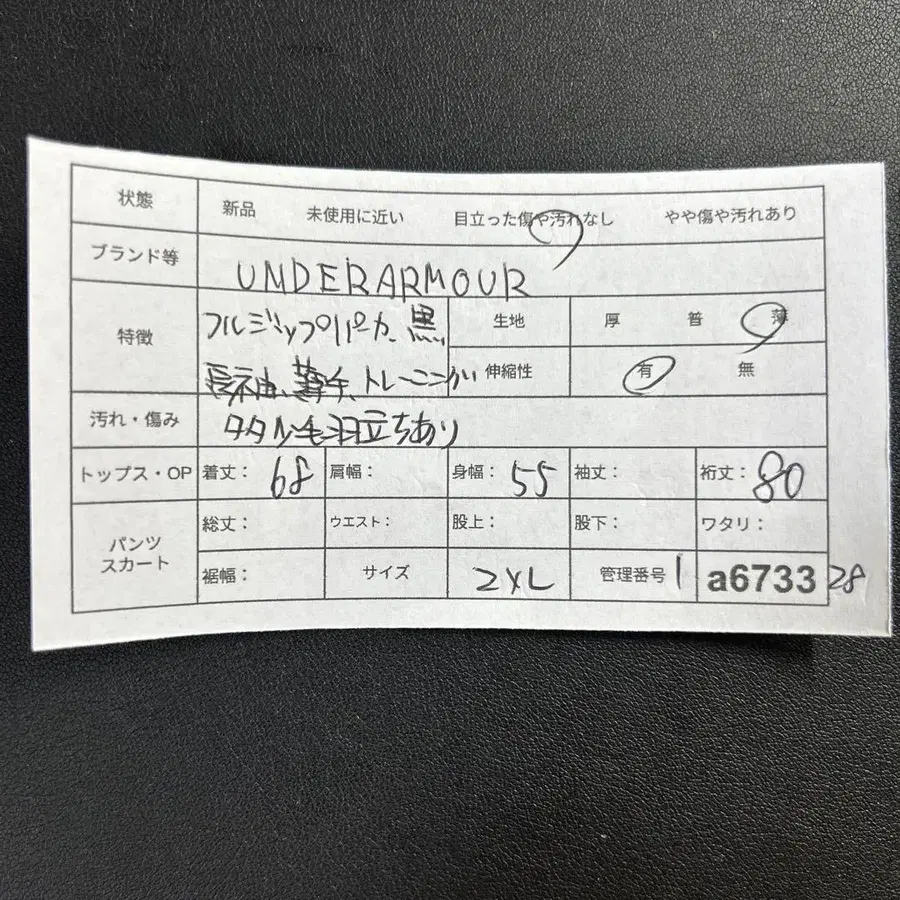 状態 新品 未使用に近い 目立った傷や汚れなし やや傷や汚れあり
ブランド等 UNDERARMOUR
特徴 フルジップパーカ、黒、 生地 厚 普 薄
長袖、薄手、トレーニング 伸縮性 有 無
汚れ・傷み 毛羽立ちあり
トップス・OP 着丈： 68 肩幅： 身幅： 55 袖丈： 裄丈： 80
パンツ スカート 総丈： ウエスト： 股上： 股下： ワタリ：
裾幅： サイズ 2XL 管理番号 1 a6733 28